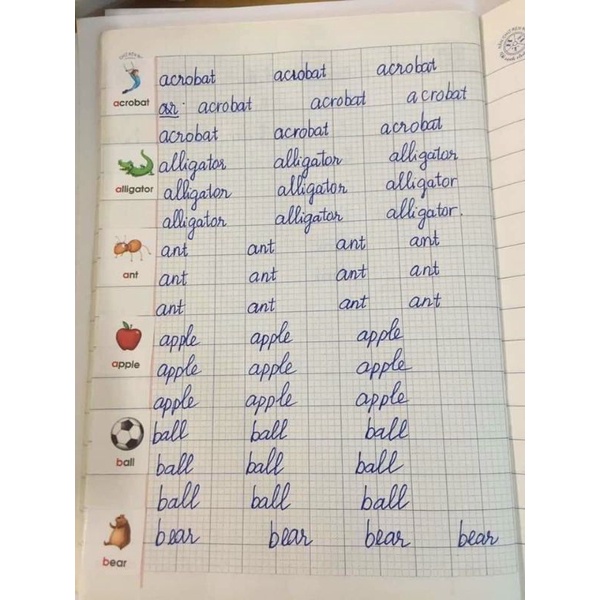 acrobat acrobat acrobat
acrobat
ar: acrobat acrobat acrobat
acrobat acrobat acrobat
alligator alligator alligator
alligator
alligator alligator alligator
alligator alligator alligator.
ant ant ant ant
ant
ant ant ant ant
ant ant ant ant
apple apple apple
apple
apple apple apple
apple apple apple
ball ball ball
ball
ball ball ball
ball ball ball
bear bear bear bear
bear